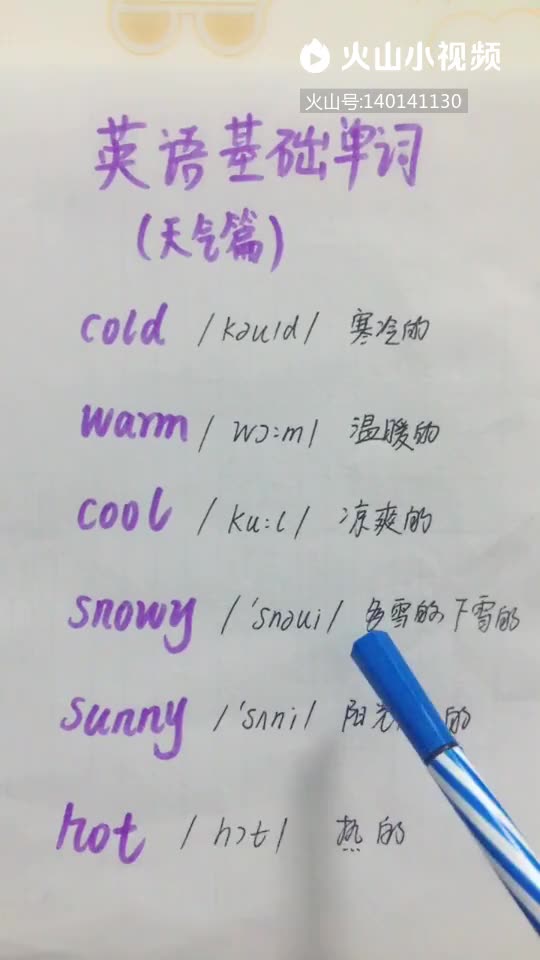 火山小视频
火山号:140141130
英语基础单词
(天气篇)
cold /kəuld/ 寒冷的
warm /wɔ:m/ 温暖的
cool /ku:l/ 凉爽的
snowy /'snəui/ 多雪的、下雪的
sunny /'sʌni/ 阳光 的
hot /hɔt/ 热的